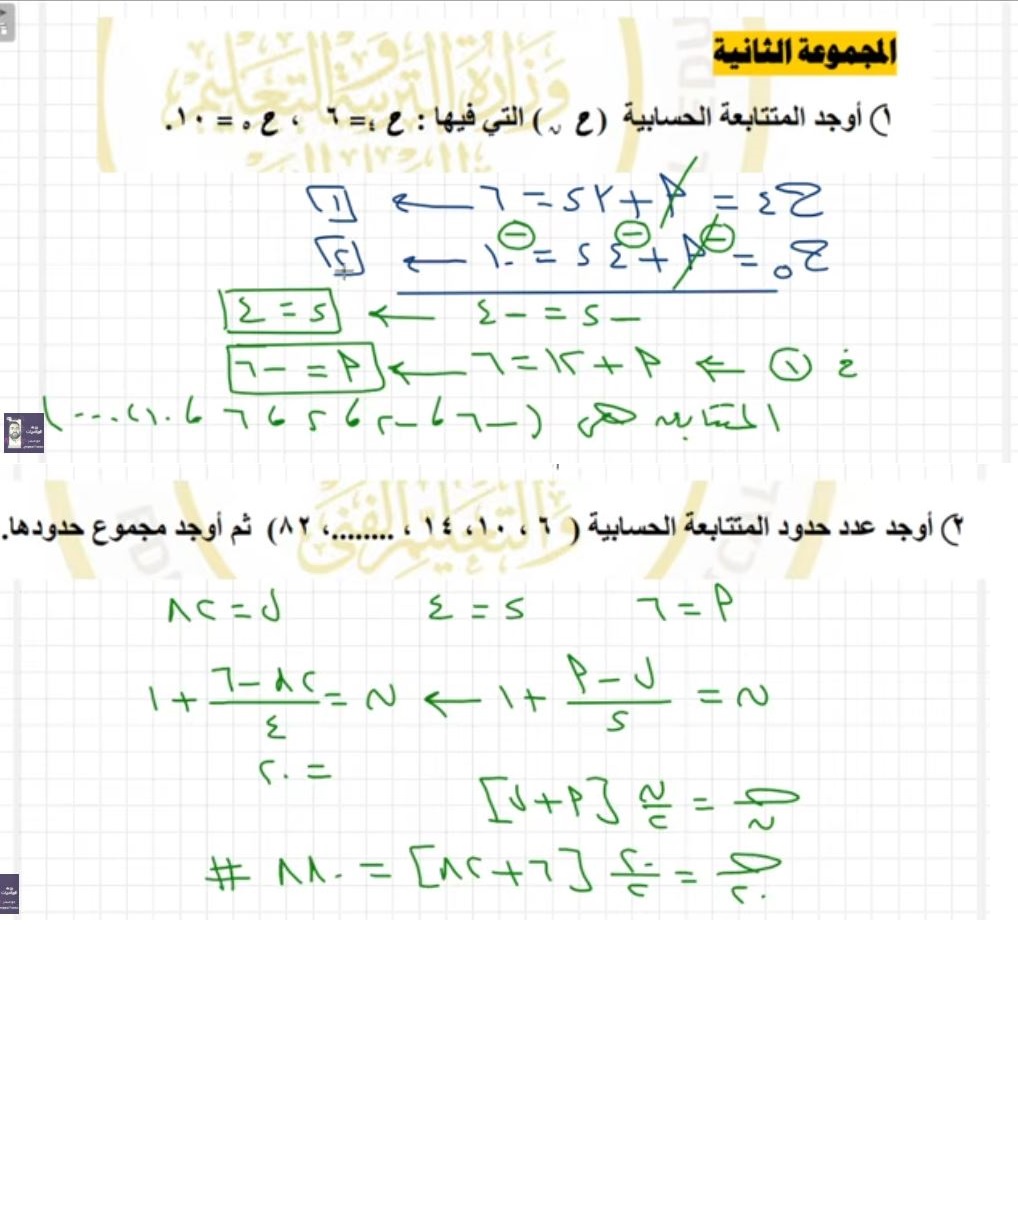 المجموعة الثانية
١) أوجد المتتابعة الحسابية (ح ن) التي فيها : ح ٤ = ٦ ، ح ٥ = ١٠.
ح٤ = أ + ٣ د = ٦ ← [١]
ح٥ = أ + ٤ د = ١٠ ← [٢]
- د = - ٤ ← د = ٤
في ① ← أ + ١٢ = ٦ ← أ = - ٦
المتتابعة هي (-٦ ، -٢ ، ٢ ، ٦ ، ١٠ ، ...)
٢) أوجد عدد حدود المتتابعة الحسابية ( ٦ ، ١٠ ، ١٤ ، ........، ٨٢) ثم أوجد مجموع حدودها.
أ = ٦ د = ٤ ل = ٨٢
ن = (ل - أ)/د + ١ ← ن = (٨٢ - ٦)/٤ + ١
= ٢٠
جـ ن = ن/٢ [أ + ل]
جـ ٢٠ = ٢٠/٢ [٦ + ٨٢] = ٨٨٠ #